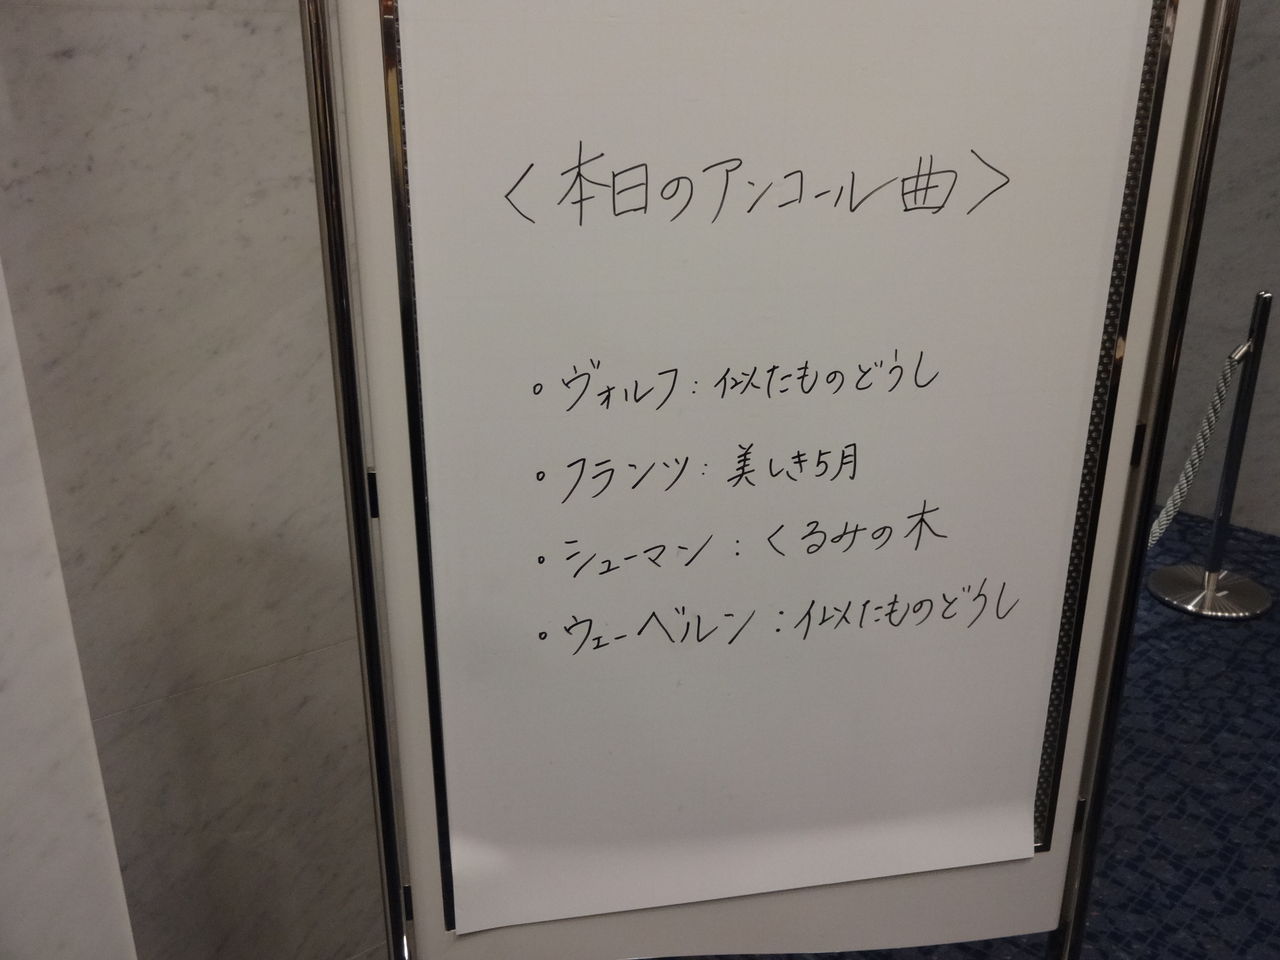 〈本日のアンコール曲〉
・ヴォルフ:似たものどうし
・フランツ:美しき5月
・シューマン:くるみの木
・ウェーベルン:似たものどうし